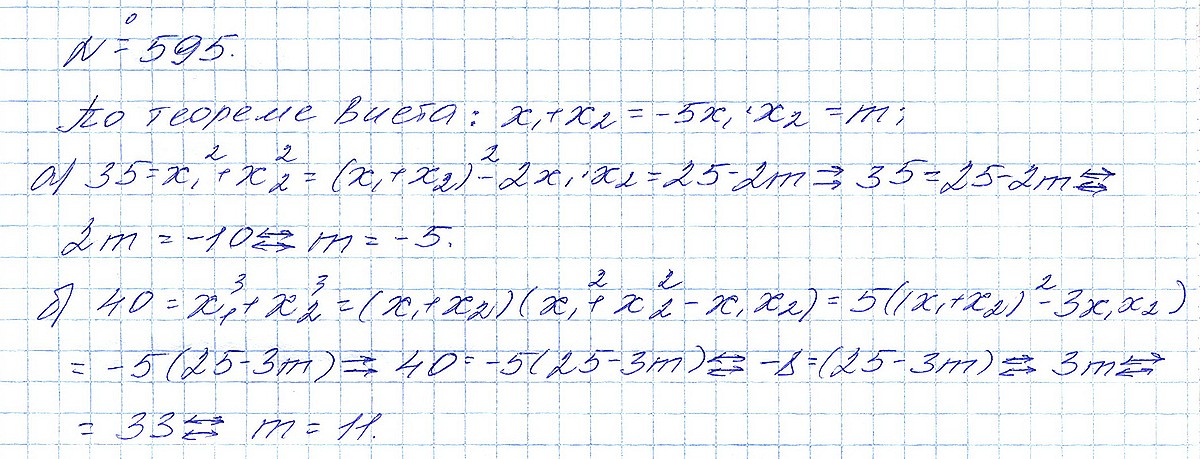 № 595.
По теореме Виета: x₁+x₂ = -5x₁·x₂ = m;
а) 35=x₁²+x₂²=(x₁+x₂)²-2x₁·x₂=25-2m⇒35=25-2m⇔
2m = -10⇔ m = -5.
б) 40=x₁³+x₂³=(x₁+x₂)(x₁²+x₂²-x₁x₂)=5((x₁+x₂)²-3x₁x₂)
= -5(25-3m)⇒ 40=-5(25-3m)⇔ -8=(25-3m)⇔ 3m⇔
= 33⇔ m = 11.